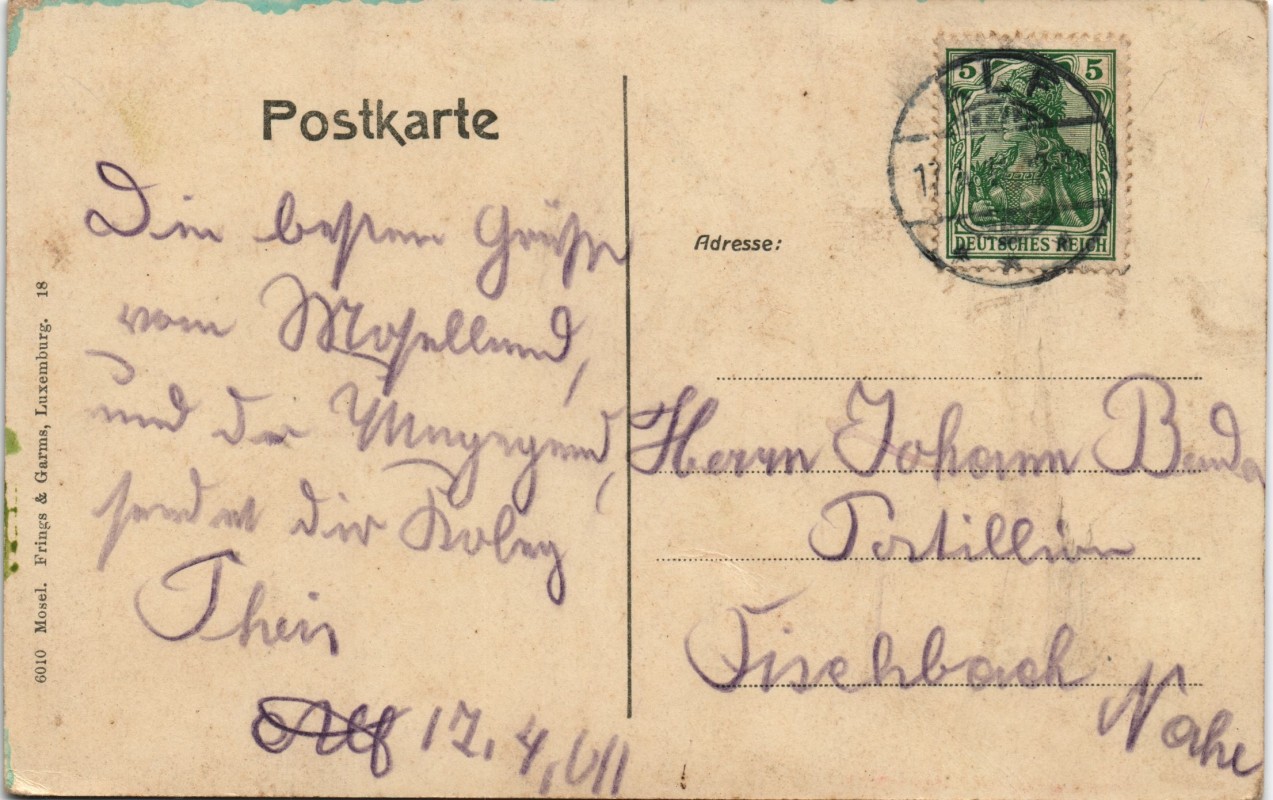 Postkarte
Die besten Grüße
vom Moselland,
und der Umgegend,
sendet dir Koleg
Theis
Alf 17.4.
Adresse:
Herrn Johann
Postillion
Fischbach
Nahe
5 5
DEUTSCHES REICH
ALF
6010 Mosel. Frings & Garms, Luxemburg. 18